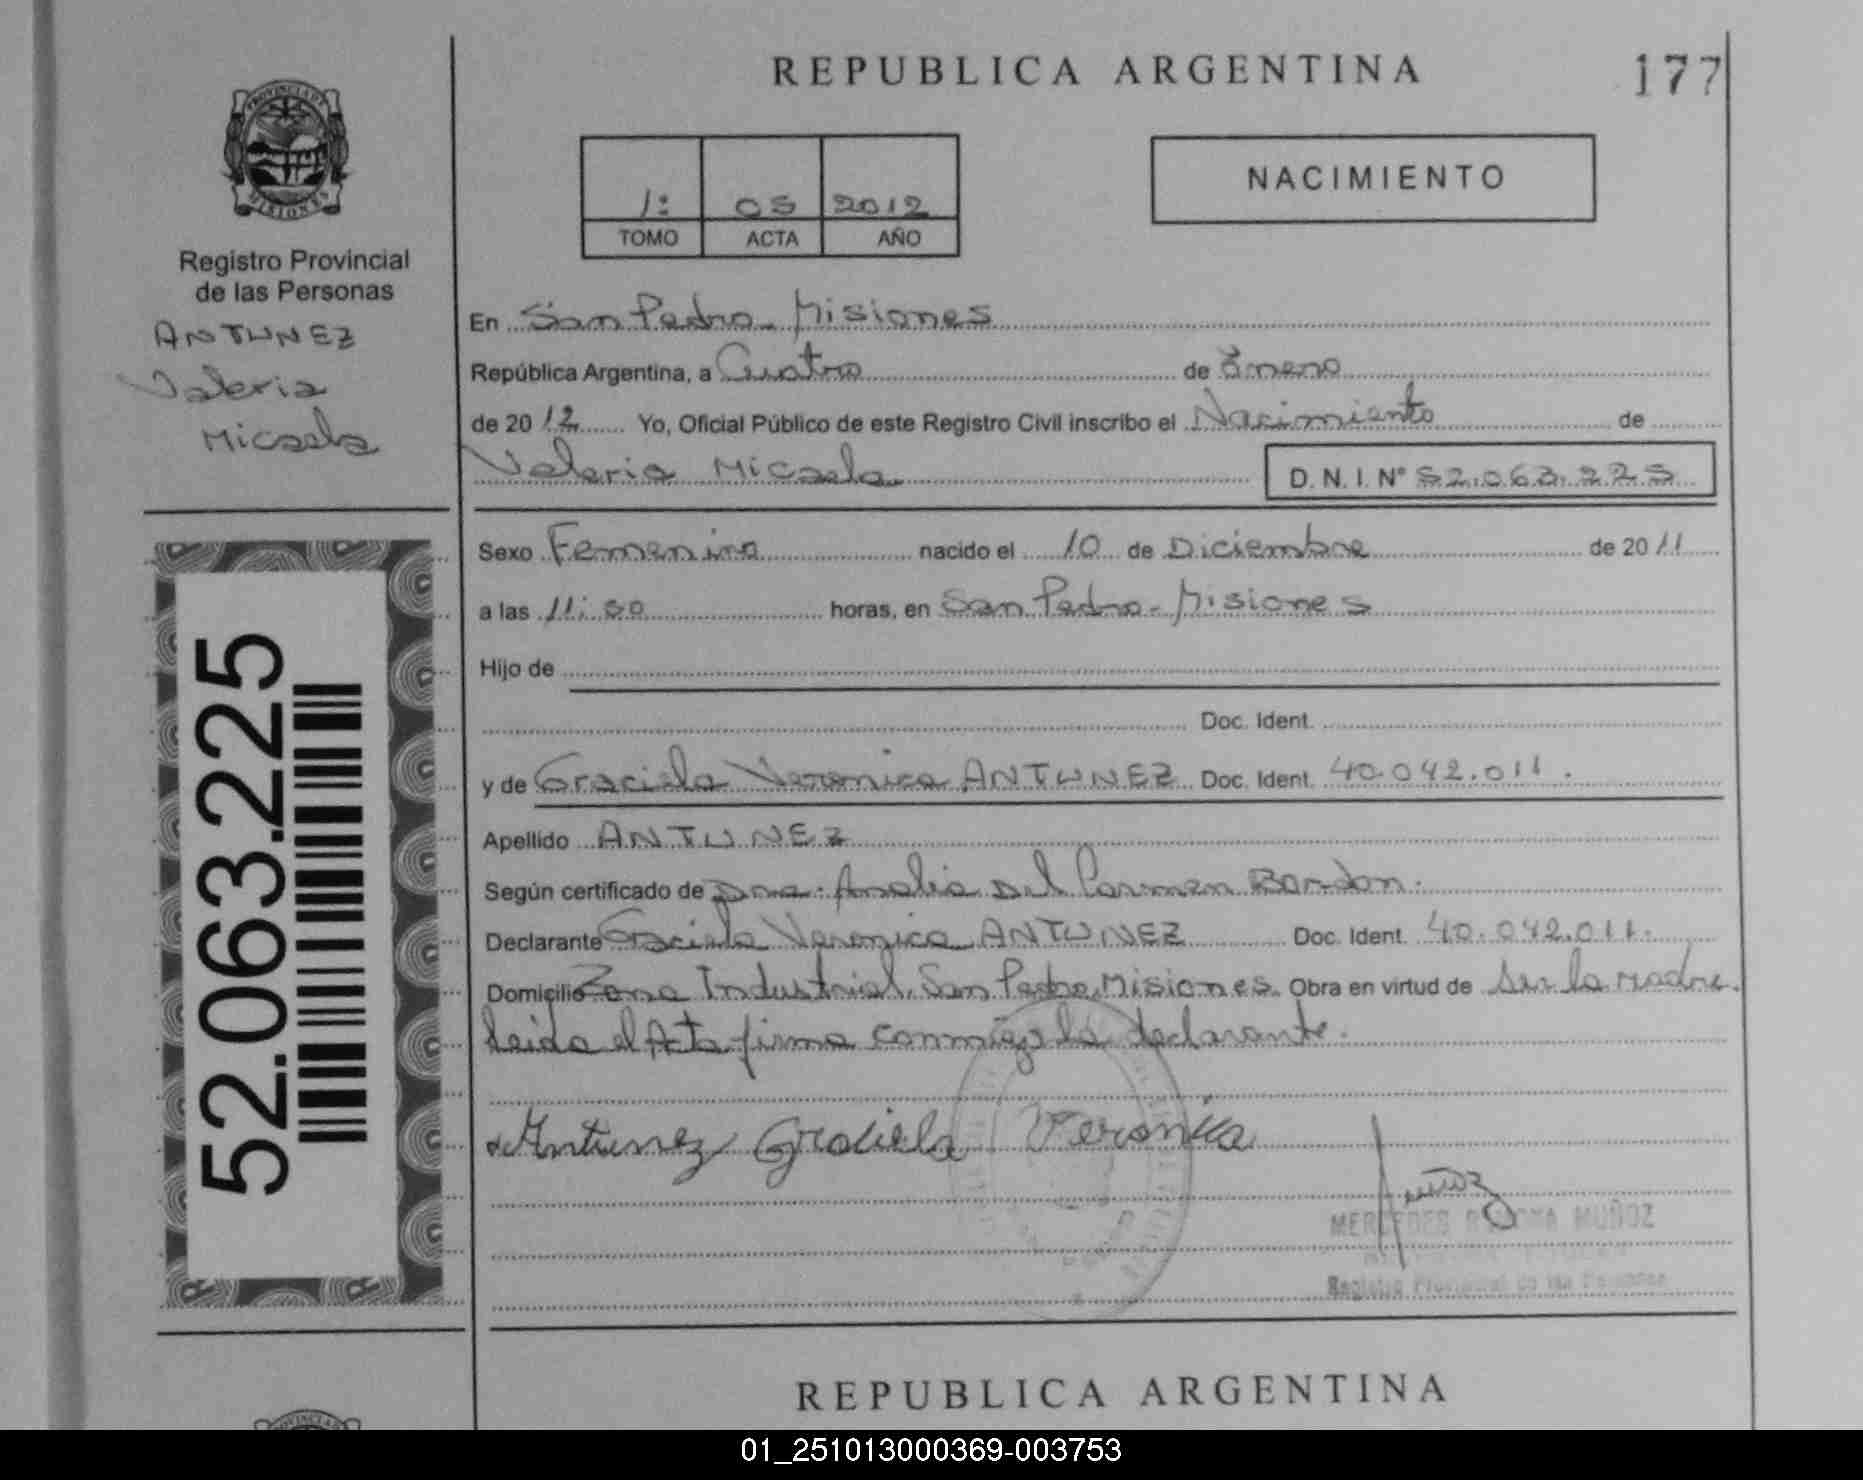 REPUBLICA ARGENTINA
177
PROVINCIA DE MISIONES
Registro Provincial
de las Personas
ANTUNEZ
Valeria
Micaela
1: 05 2012
TOMO ACTA AÑO
NACIMIENTO
En San Pedro - Misiones
República Argentina, a Cuatro de Enero
de 2012 Yo, Oficial Público de este Registro Civil inscribo el Nacimiento de
Valeria Micaela D.N.I. N° 52.063.225
Sexo Femenino nacido el 10 de Diciembre de 2011
a las 11:50 horas, en San Pedro - Misiones
Hijo de
Doc. Ident.
y de Graciela Veronica ANTUNEZ Doc. Ident. 40.042.011.
Apellido ANTUNEZ
Según certificado de Dra. Analia Del Carmen Bordon.
Declarante Graciela Veronica ANTUNEZ Doc. Ident. 40.042.011.
Domicilio Zona Industrial, San Pedro, Misiones. Obra en virtud de Ser la madre.
Leida el Acta firma conmigo la declarante.
Antunez Graciela Veronica
Muñoz
MERCEDES MUÑOZ
Registro Provincial de las Personas
52.063.225
REPUBLICA ARGENTINA
01_251013000369-003753